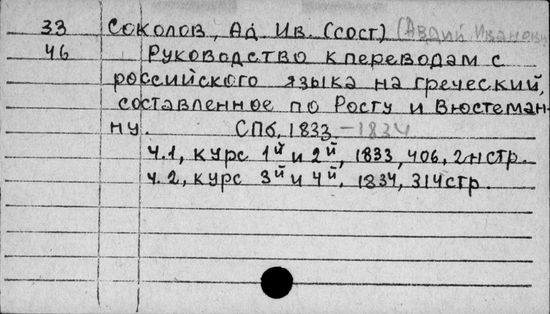 33 Соколов, Ад. Ив. (сост) (Авдий Иванович
46 Руководство к переводам с
российского языка на греческий,
составленное по Росту и Вюстеман-
ну. СПб, 1833 -1834
ч.1, курс 1й и 2й, 1833, 406, 2н стр.
ч.2, курс 3й и 4й, 1834, 314 стр.